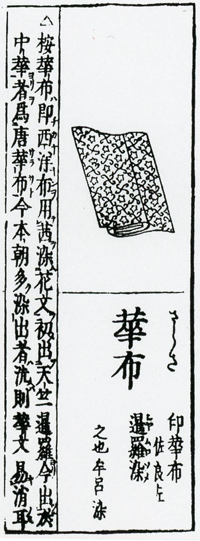 さらさ
華布
印華布
佐良止
暹羅染
之也牟呂染
△桉華布即西洋布用茜染花文初出天竺暹羅今出於
中華者爲唐華布今本朝多染出者洗則華文易消取